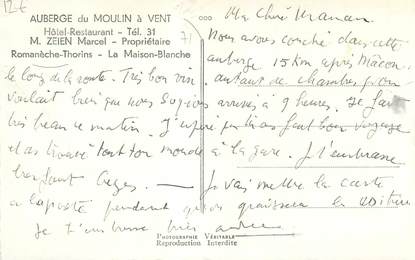 12-6
AUBERGE DU MOULIN À VENT
Hôtel-Restaurant - Tél. 31
M. ZEIEN Marcel - Propriétaire
Romanèche-Thorins - La Maison-Blanche
71
Ma Chère Maman
Nous avons couché dans cette
auberge 15 km après Mâcon
le long de la route. Très bon vin. autant de chambres qu'on
voulait bien que nous soyions arrivés à 9 heures. Il fait
très beau ce matin. J'espère que tu as fait bon voyage
et as trouvé tout ton monde à la gare. Je t'embrasse
très fort
Je vais mettre la carte
à la poste pendant qu'on graissera la voiture
Je t'embrasse bien
PHOTOGRAPHIE VÉRITABLE
Reproduction Interdite